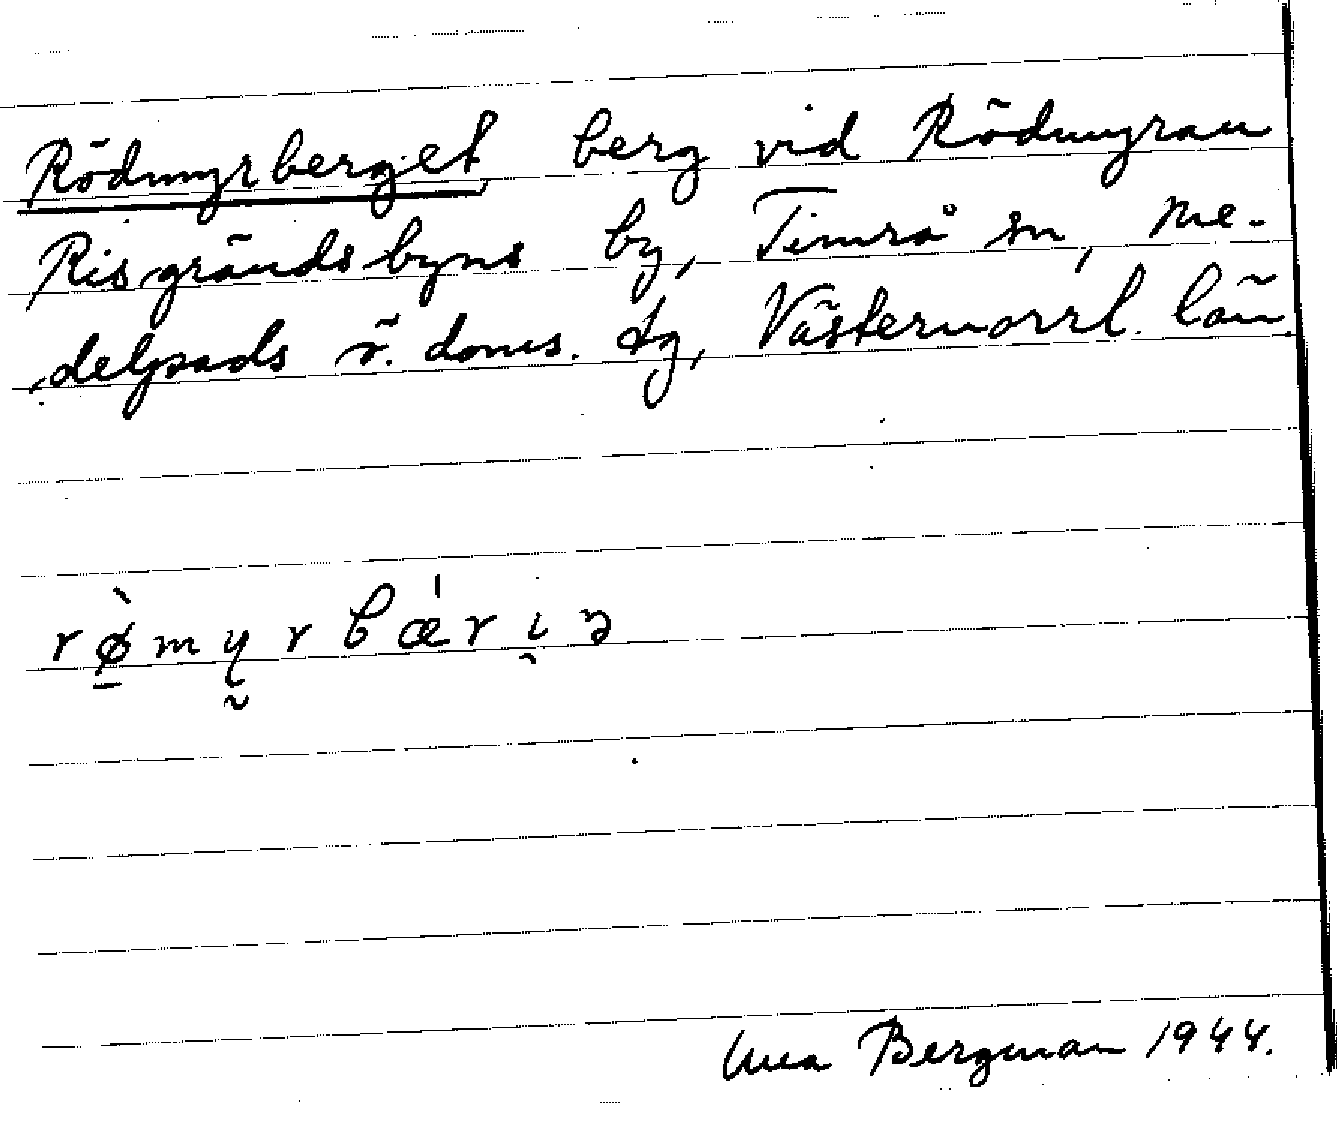 Rödmyrberget, berg vid Rödmyran
Risgrändsbyns by, Timrå sn, Me-
delpads v. doms. tg, Västernorrl. län.
rø̱̀my̰rbǽrı̯ə
Bergman 1944.